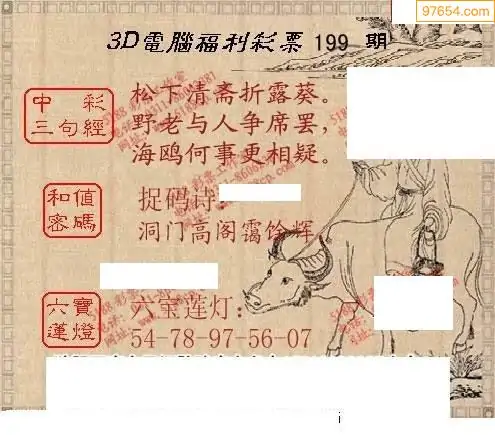 97654.com
3D電腦福利彩票 199 期
中彩
三句經
松下清斋折露葵。
野老与人争席罢，
海鸥何事更相疑。
和值
密碼
捉码诗:
洞门高阁霭馀辉
六寶
蓮燈
六宝莲灯:
54-78-97-56-07